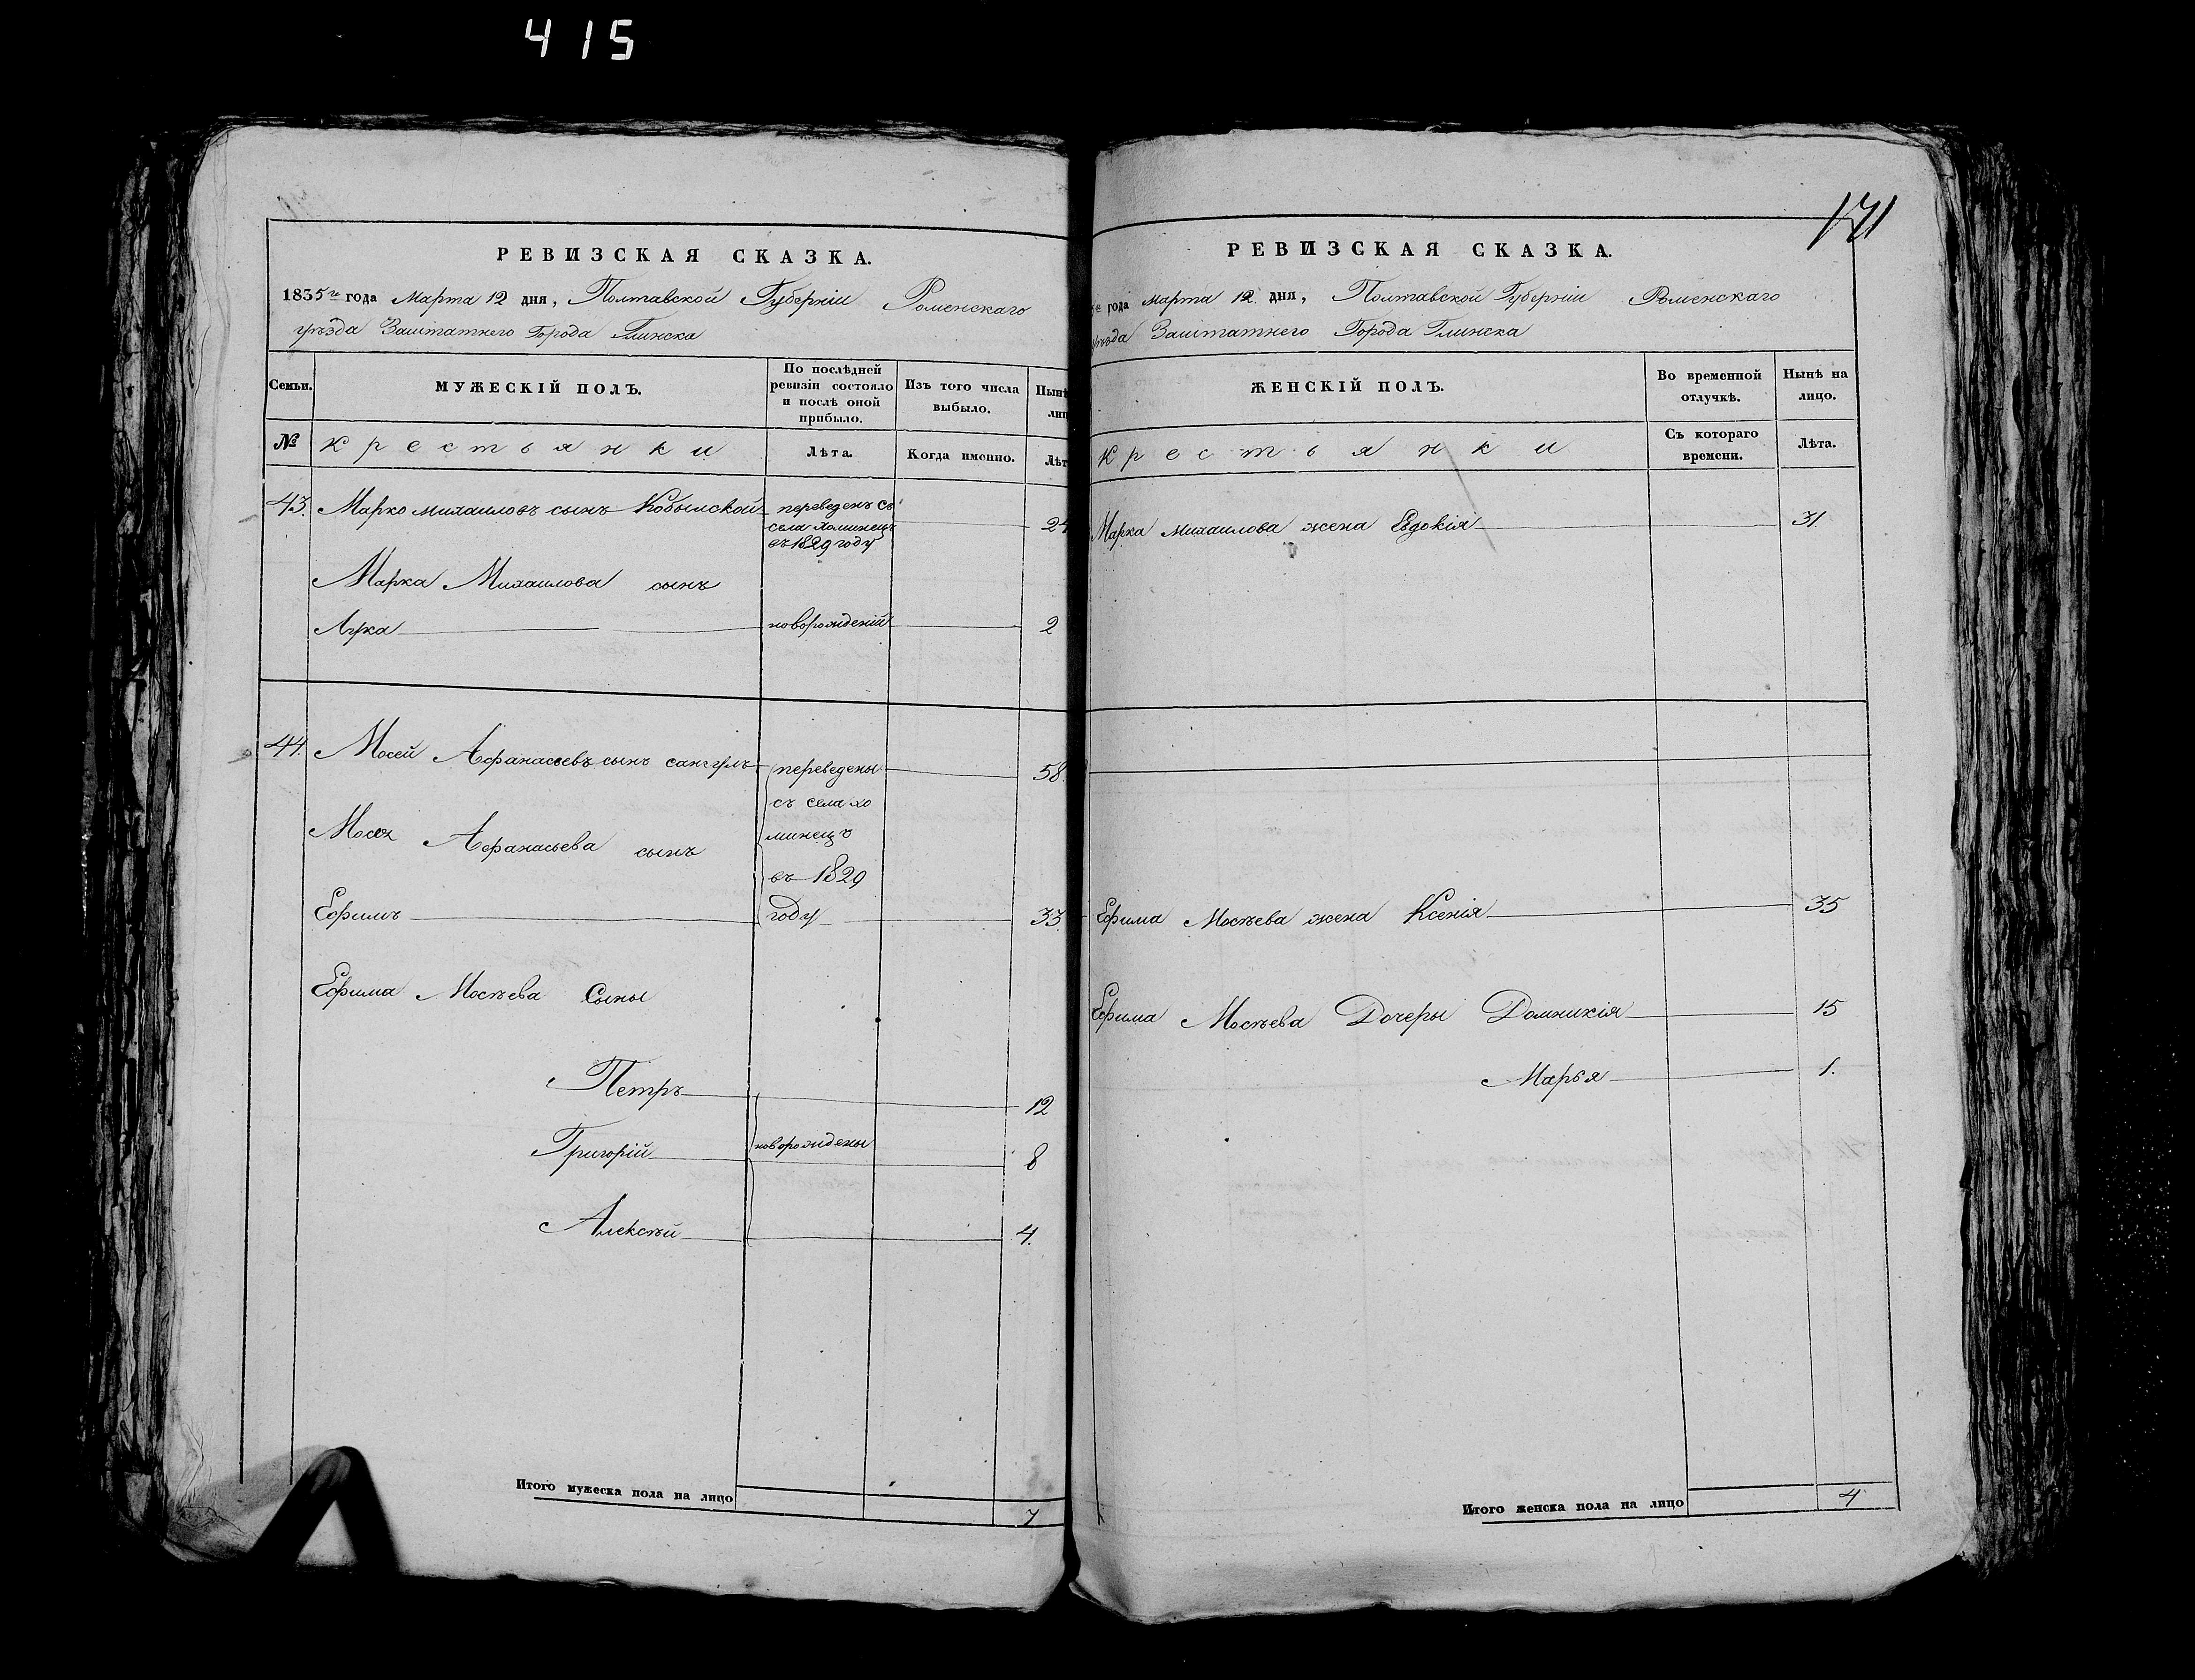 415
171
РЕВИЗСКАЯ СКАЗКА.
1835го года Марта 12 дня, Полтавской Губерніи Роменскаго
уѣзда Заштатнего Города Глинска
Семьи. МУЖЕСКІЙ ПОЛЪ. По послѣдней ревизіи состояло и послѣ оной прибыло. Изъ того числа выбыло. Нынѣ
№ крестьянки Лѣта. Когда именно.
43. Марко михаиловъ сынъ Кобылской переведенъ съ
села Хоминецъ
въ 1829 году
Марка Михаилова сынъ
Лука новорожденій 2
44. Мосей Афанасьевъ сынъ переведены 58
съ села хо
Мосея Афанасьева сынъ минецъ
въ 1829
Ефимъ году 33
Ефима Мосѣева Сыны
Петръ 12
Григорій новорождены 8
Алексѣй 4.
Итого мужеска пола на лицо 7
РЕВИЗСКАЯ СКАЗКА.
года марта 12 дня, Полтавской Губерніи Роменскаго
уѣзда Заштатнего Города Глинска
ЖЕНСКІЙ ПОЛЪ. Во временной отлучкѣ. Нынѣ на лицо.
крестьянки Съ котораго времени. Лѣта.
Марка михаилова жена Евдокія 31
Ефима Мосѣева жена Ксенія 35
Ефима Мосѣева Дочеры Домникія 15
Марья 1.
Итого женска пола на лицо 4